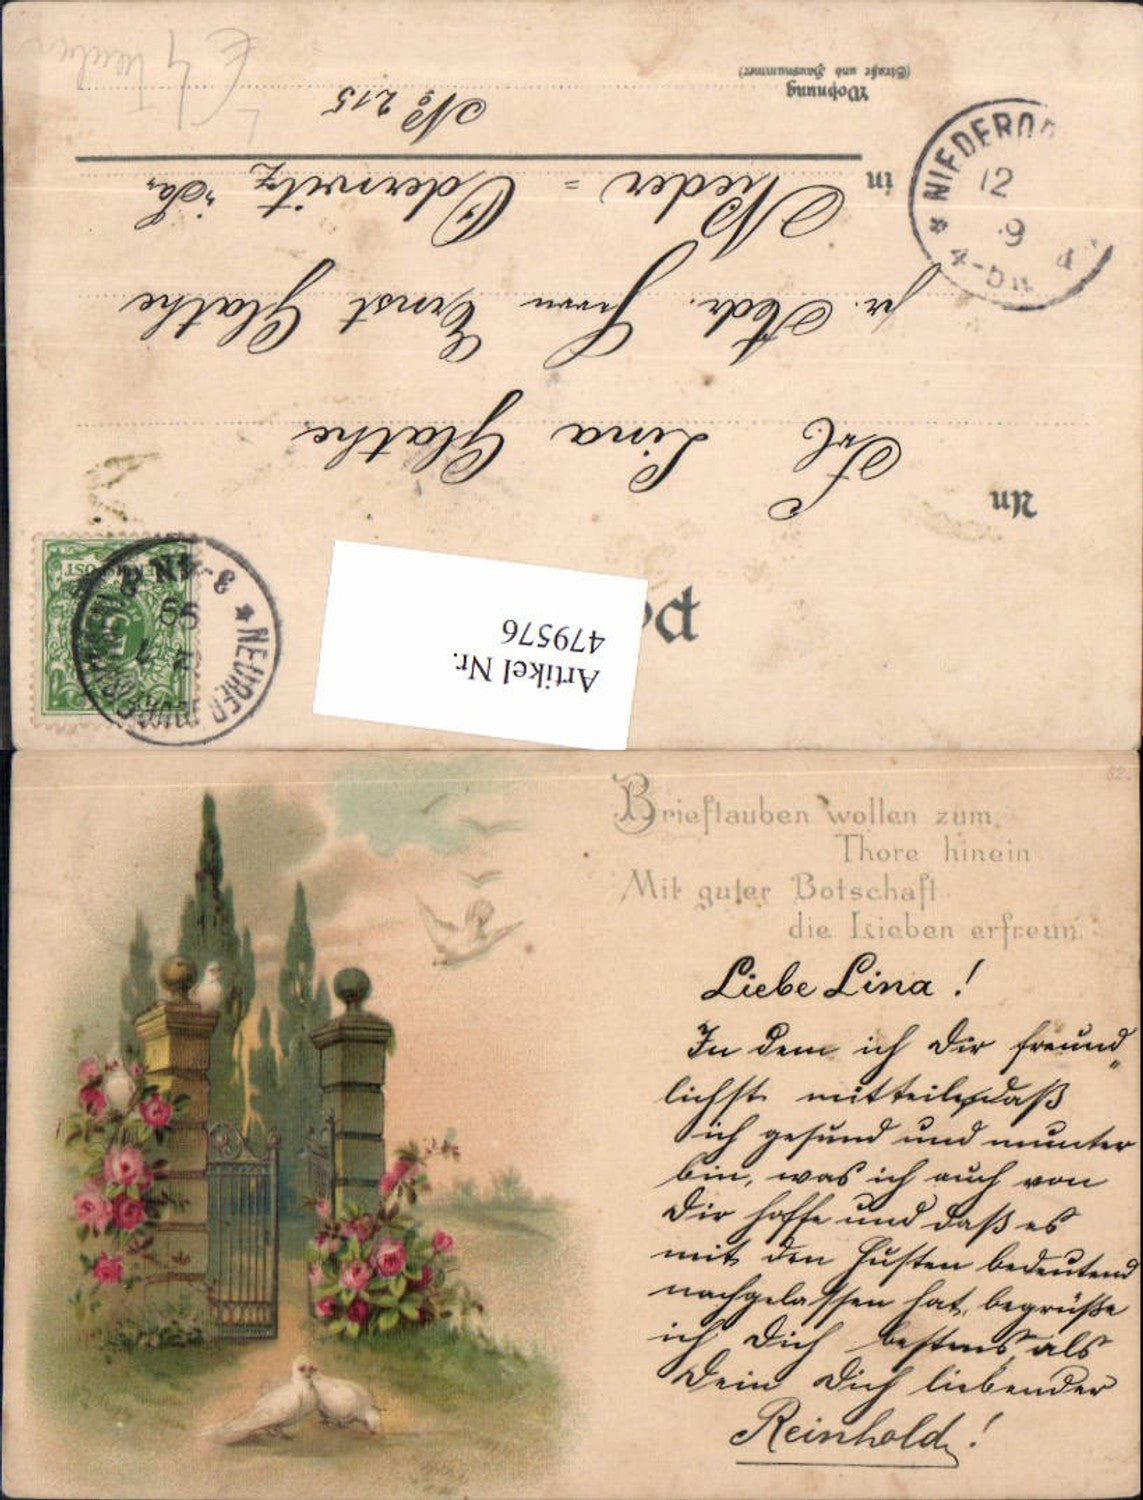 Wohnung
(Straße und Hausnummer)
No 215
in Nieder=Oderwitz i. Sa.
pr. Adr. Herrn Ernst Glathe
Frl Lina Glathe
An
Artikel Nr.
479576
NIEDEROD
12
9
4-5N
* NEUGER
3-4N
99
Brieftauben wollen zum
Thore hinein
Mit guter Botschaft
die Lieben erfreun.
62.
Liebe Lina!
In dem ich Dir freund„
lichst mitteile, daß
ich gesund und munter
bin, was ich auch von
Dir hoffe und daß es
mit den Husten bedeutend
nachgelassen hat, begrüße
ich Dich bestens als
Dein Dich liebender
Reinhold!